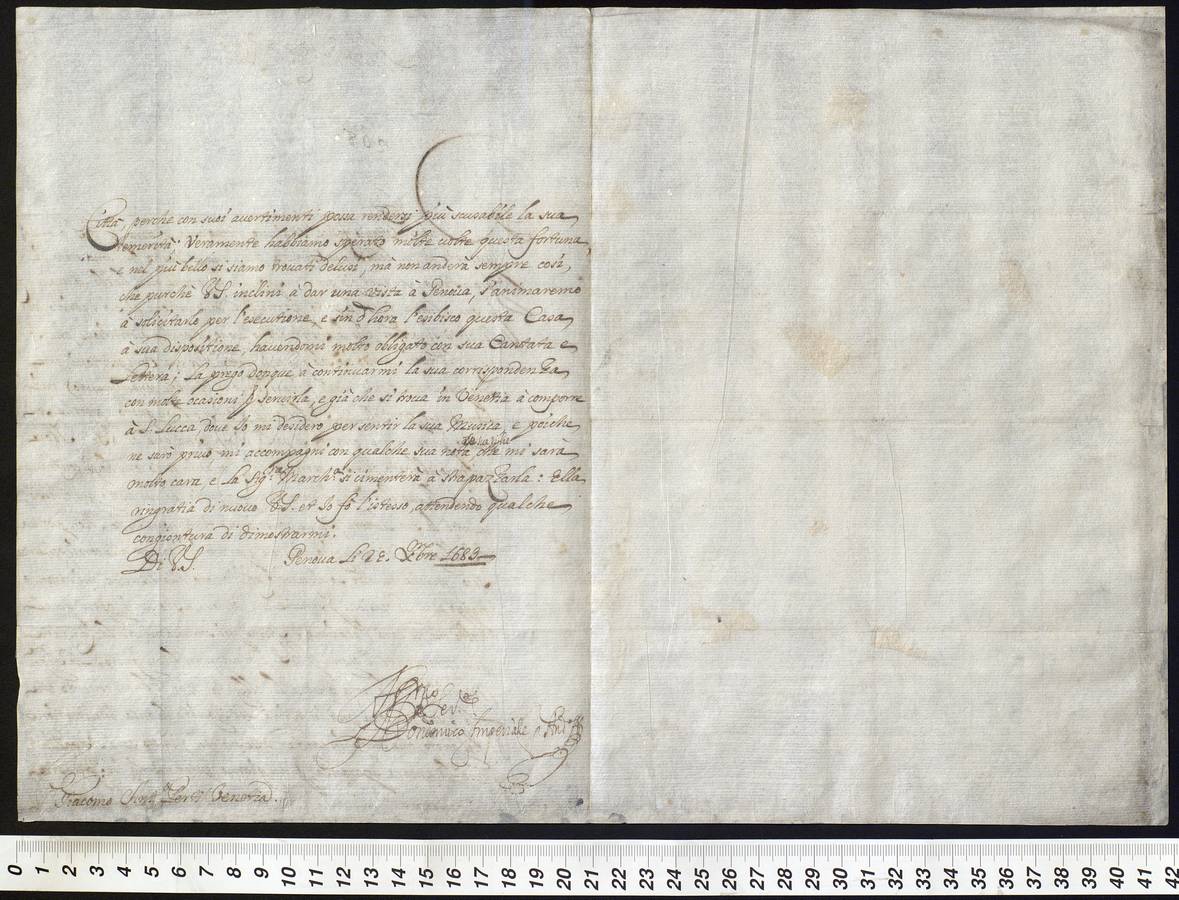 Città, perche con suoi avertimenti possa rendersi più scusabile la sua
temerità: Veramente habbiamo sperato molte volte questa fortuna,
e nel più bello si siamo trovati delusi, mà non anderà sempre così,
che purchè V.S. inclini à dar una vista à Genova, s'animaremo
à solicitarlo per l'esecutione, e sin d'hora l'esibisco questa Casa
à sua dispositione, havendomi molto obligato con sua Cantata e
Lettera; La prego donque à continuarmi la sua corrispondenza
con molte ocasioni p servirla, e già che si trova in Venetia à comporre
à S. Lucca, dove Io mi desidero per sentir la sua Musica, e poiche
ne sarò privo mi accompagni con qualche sua nota che mi sarà
molto cara e La Sig.ra March.a si cimenterà à strapazzarla: Ella
ringratia di nuovo V.S. et Io fò l'istesso, attendendo qualche
congiontura di dimostrarmi.
Di V.S. Genova Li 28. Xbre 1683
Domenico Imperiale
Giacomo Ant.o Perti Venetia.